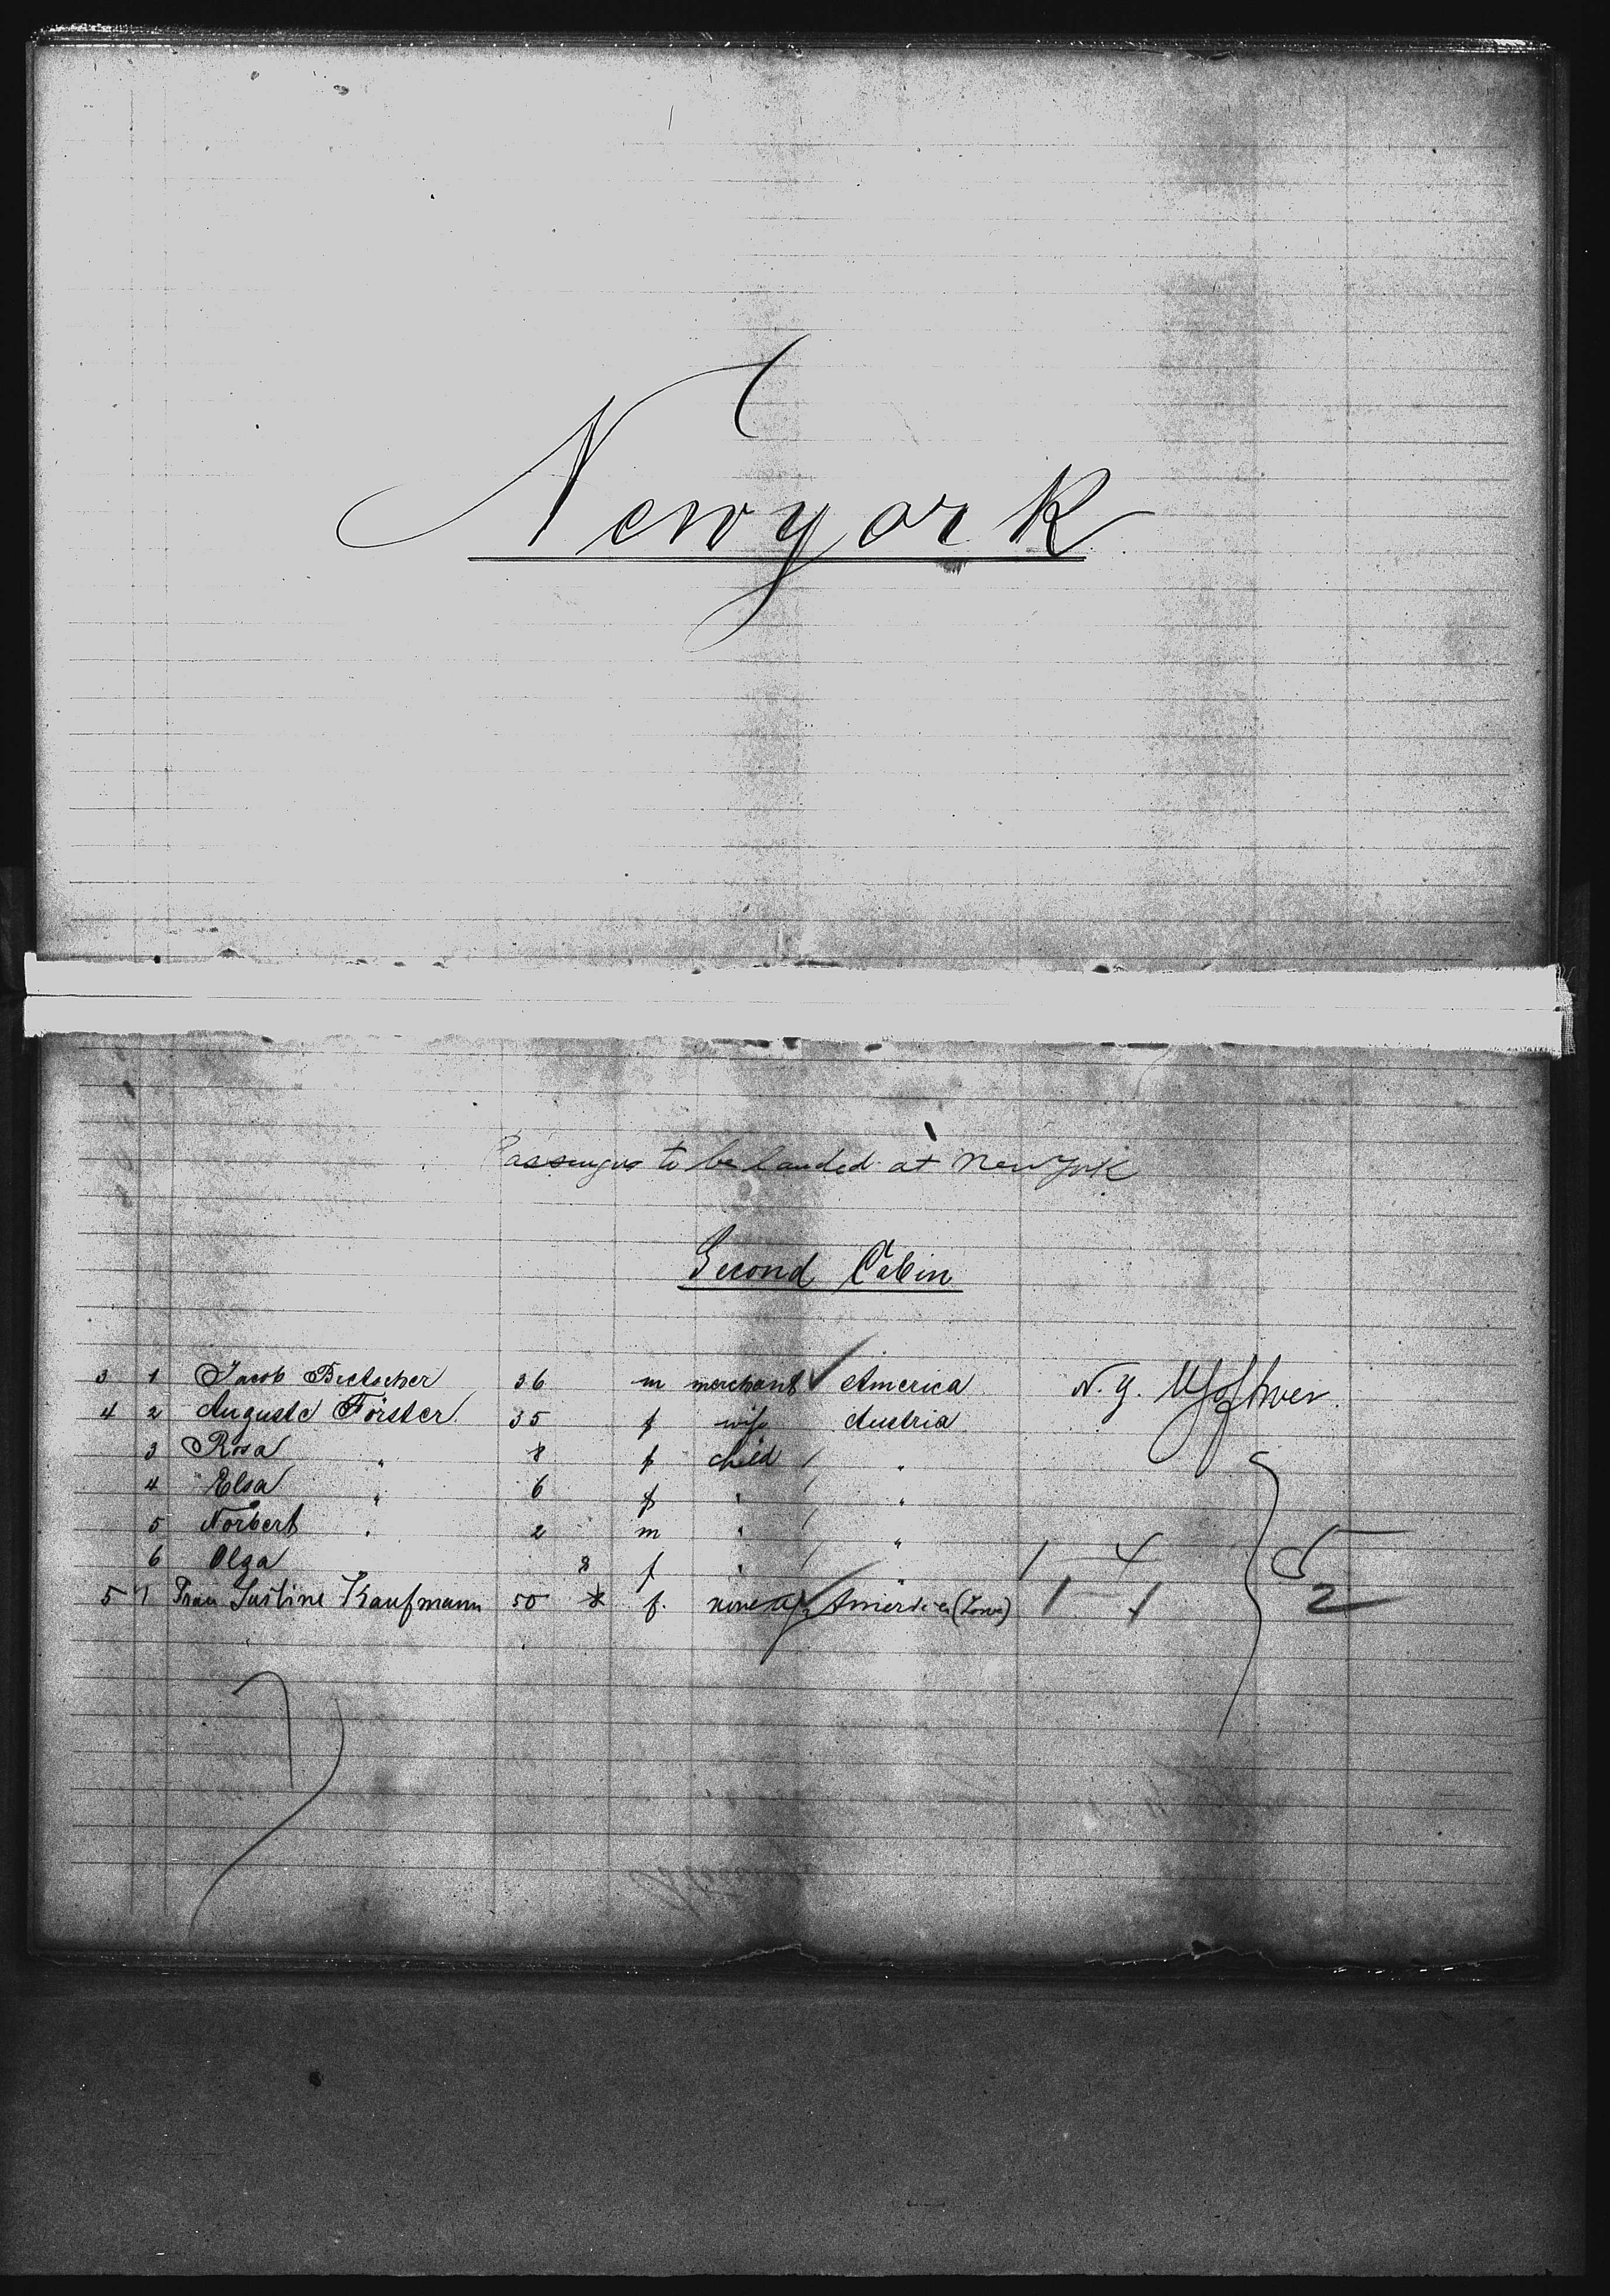 New york
Passengers to be landed at New York
Second Cabin
3 1 Jacob Bretscher 36 m merchant America N. Y.
4 2 Auguste Förster 35 f wife Austria
3 Rosa " 8 f child / "
4 Elsa " 6 f " / "
5 Norbert " 2 m " / "
6 Olga 8 f " / " 1 4 5
5 7 Frau Justine Kaufmann 50 f. America (Iowa) 1 1 2